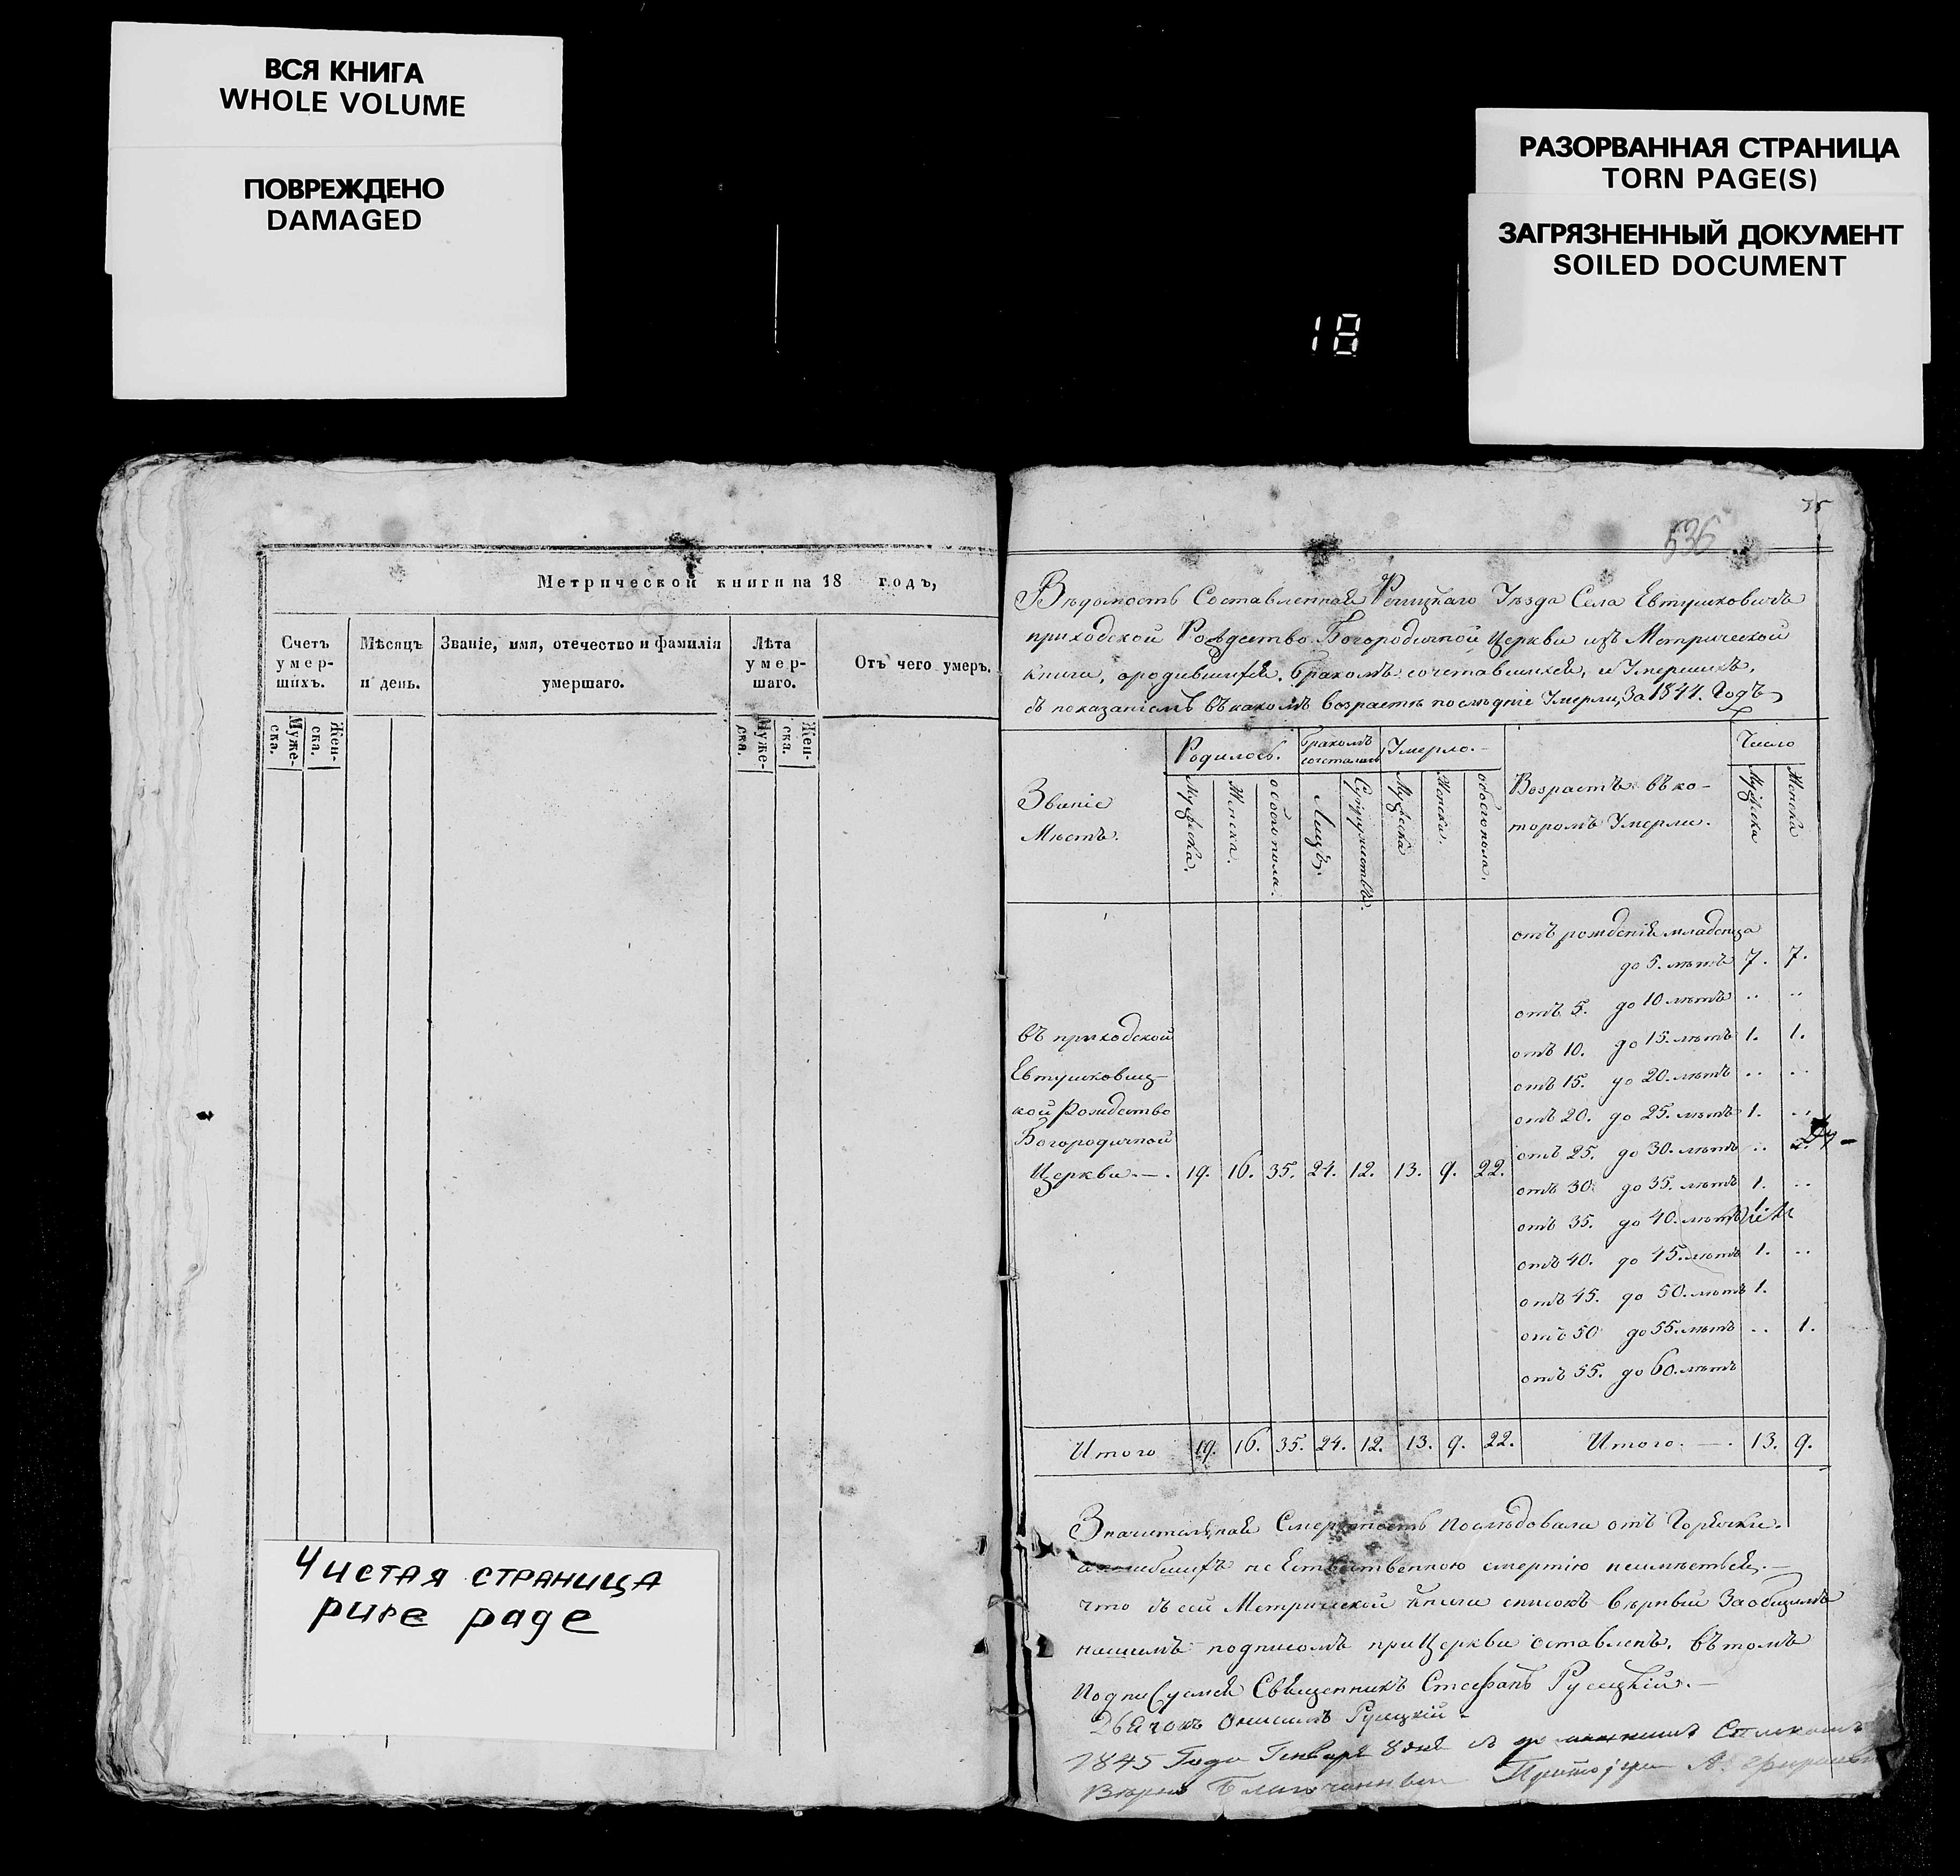 ВСЯ КНИГА
WHOLE VOLUME
ПОВРЕЖДЕНО
DAMAGED
РАЗОРВАННАЯ СТРАНИЦА
TORN PAGE(S)
ЗАГРЯЗНЕННЫЙ ДОКУМЕНТ
SOILED DOCUMENT
18
Метрической книги на 18 годъ,
Счетъ умер-шихъ.
Мѣсяцъ и день.
Званіе, имя, отечество и фамилія умершаго.
Лѣта умер-шаго.
Отъ чего умеръ.
Муже-ска.
Жен-ска.
Муже-ска.
Жен-ска.
Чистая страница
pure page
536
Вѣдомость Составленная Речицкаго Уѣзда Села Евтушковичъ
приходской Рождество Богородичной Церкви изъ Метрической
книги, о родившихся, бракомъ сочетавшихся, и Умершихъ,
съ показаніемъ въ какомъ возрастѣ послѣдніе Умерли, За 1844. Годъ
Званіе Мѣстъ.
Родилось.
Бракомъ сочетались
Умерло.
Возрастъ въ ко-торомъ Умерли.
Число
Мужеска.
Женска.
обоего пола.
Лицъ.
Супружествъ.
Мужеска
Женска.
обоего пола.
Мужеска
Женска
отъ рожденія младенца
до 5. лѣтъ 7. 7.
отъ 5. до 10 лѣтъ .. ..
отъ 10. до 15. лѣтъ 1. 1.
отъ 15. до 20. лѣтъ .. ..
отъ 20. до 25. лѣтъ 1. ..
отъ 25. до 30. лѣтъ ..
отъ 30. до 35. лѣтъ 1. ..
отъ 35. до 40. лѣтъ
отъ 40. до 45. лѣтъ 1. ..
отъ 45. до 50. лѣтъ 1.
отъ 50 до 55. лѣтъ .. 1.
отъ 55. до 60. лѣтъ
въ приходской
Евтушковиц-
кой Рождество
Богородичной
Церкви. — . 19. 16. 35. 24. 12. 13. 9. 22.
Итого 19. 16. 35. 24. 12. 13. 9. 22. Итого. — . 13. 9.
Значительная Смертность послѣдовала отъ Горячки.
не Естественною смертію неимѣется. —
что съ сей Метрической книги списокъ вѣрный За общимъ
нашимъ подписомъ при Церкви оставленъ, въ томъ
Подписуемся Священникъ Стефанъ Русецкій. —
Дьячокъ Онисимъ Русецкій
1845 Года Генваря 8 дня съ
Вѣрно Благочинный